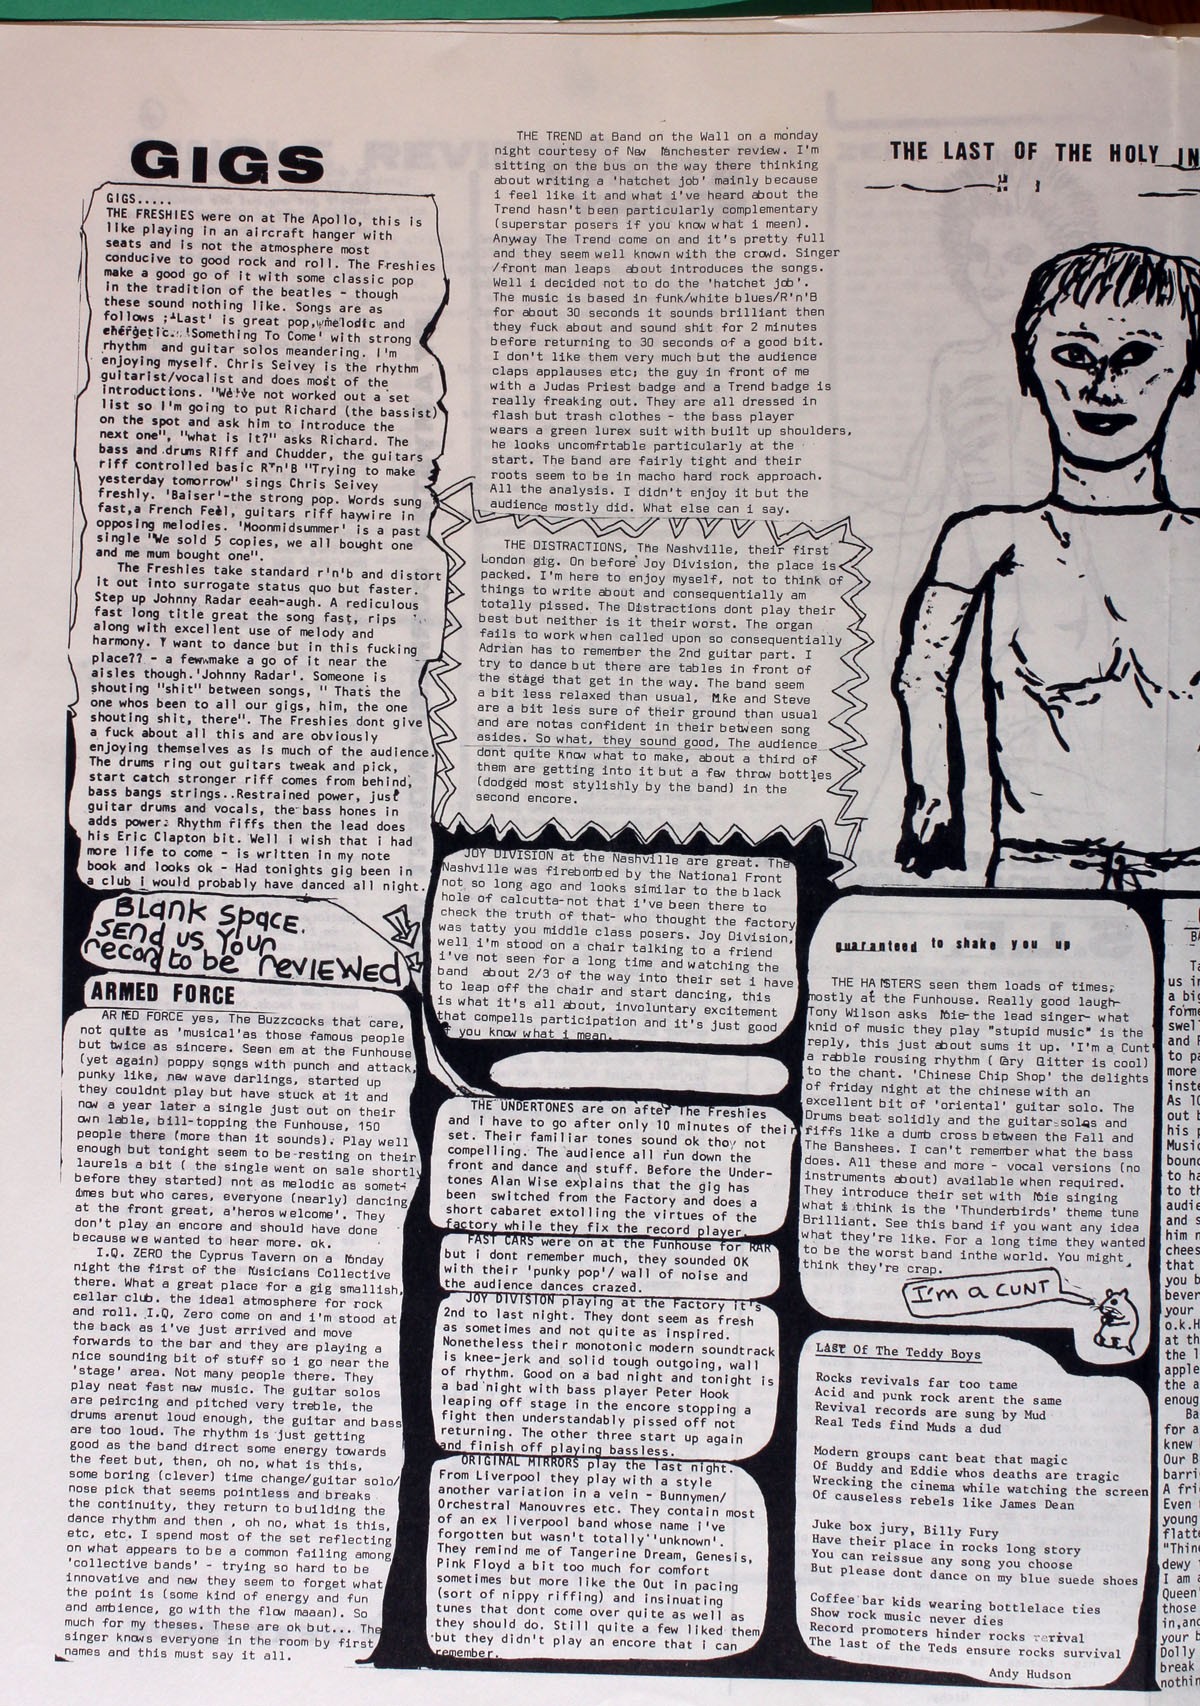 GIGS
GIGS.....
THE FRESHIES were on at The Apollo, this is
like playing in an aircraft hanger with
seats and is not the atmosphere most
conducive to good rock and roll. The Freshies
make a good go of it with some classic pop
in the tradition of the beatles - though
these sound nothing like. Songs are as
follows ;'Last' is great pop, melodic and
energetic. 'Something To Come' with strong
rhythm and guitar solos meandering. I'm
enjoying myself. Chris Seivey is the rhythm
guitarist/vocalist and does most of the
introductions. "We've not worked out a set
list so I'm going to put Richard (the bassist)
on the spot and ask him to introduce the
next one", "what is it?" asks Richard. The
bass and drums Riff and Chudder, the guitars
riff controlled basic R'n'B "Trying to make
yesterday tomorrow" sings Chris Seivey
freshly. 'Baiser'-the strong pop. Words sung
fast,a French Feel, guitars riff haywire in
opposing melodies. 'Moonmidsummer' is a past
single "We sold 5 copies, we all bought one
and me mum bought one".
The Freshies take standard r'n'b and distort
it out into surrogate status quo but faster.
Step up Johnny Radar eeah-augh. A rediculous
fast long title great the song fast, rips
along with excellent use of melody and
harmony. I want to dance but in this fucking
place?? - a few make a go of it near the
aisles though.'Johnny Radar'. Someone is
shouting "shit" between songs, " Thats the
one whos been to all our gigs, him, the one
shouting shit, there". The Freshies dont give
a fuck about all this and are obviously
enjoying themselves as is much of the audience.
The drums ring out guitars tweak and pick,
start catch stronger riff comes from behind,
bass bangs strings..Restrained power, just
guitar drums and vocals, the bass hones in
adds power. Rhythm fiffs then the lead does
his Eric Clapton bit. Well i wish that i had
more life to come - is written in my note
book and looks ok - Had tonights gig been in
a club i would probably have danced all night.
BLANK SPACE.
SEND US YOUR
record to be REVIEWED
ARMED FORCE
ARMED FORCE yes, The Buzzcocks that care,
not quite as 'musical'as those famous people
but twice as sincere. Seen em at the Funhouse
(yet again) poppy songs with punch and attack,
punky like, new wave darlings, started up
they couldnt play but have stuck at it and
now a year later a single just out on their
own lable, bill-topping the Funhouse, 150
people there (more than it sounds). Play well
enough but tonight seem to be resting on their
laurels a bit ( the single went on sale shortly
before they started) not as melodic as somet-
imes but who cares, everyone (nearly) dancing
at the front great, a'heros welcome'. They
don't play an encore and should have done
because we wanted to hear more. ok.
I.Q. ZERO the Cyprus Tavern on a Monday
night the first of the Musicians Collective
there. What a great place for a gig smallish,
cellar club. the ideal atmosphere for rock
and roll. I.Q, Zero come on and i'm stood at
the back as i've just arrived and move
forwards to the bar and they are playing a
nice sounding bit of stuff so i go near the
'stage' area. Not many people there. They
play neat fast new music. The guitar solos
are peircing and pitched very treble, the
drums arenut loud enough, the guitar and bass
are too loud. The rhythm is just getting
good as the band direct some energy towards
the feet but, then, oh no, what is this,
some boring (clever) time change/guitar solo/
nose pick that seems pointless and breaks
the continuity, they return to building the
dance rhythm and then , oh no, what is this,
etc, etc. I spend most of the set reflecting
on what appears to be a common failing among
'collective bands' - trying so hard to be
innovative and new they seem to forget what
the point is (some kind of energy and fun
and ambience, go with the flow maaan). So
much for my theses. These are ok but... The
singer knows everyone in the room by first
names and this must say it all.
THE TREND at Band on the Wall on a monday
night courtesy of New Manchester review. I'm
sitting on the bus on the way there thinking
about writing a 'hatchet job' mainly because
i feel like it and what i've heard about the
Trend hasn't been particularly complementary
(superstar posers if you know what i meen).
Anyway The Trend come on and it's pretty full
and they seem well known with the crowd. Singer
/front man leaps about introduces the songs.
Well i decided not to do the 'hatchet job'.
The music is based in funk/white blues/R'n'B
for about 30 seconds it sounds brilliant then
they fuck about and sound shit for 2 minutes
before returning to 30 seconds of a good bit.
I don't like them very much but the audience
claps applauses etc; the guy in front of me
with a Judas Priest badge and a Trend badge is
really freaking out. They are all dressed in
flash but trash clothes - the bass player
wears a green lurex suit with built up shoulders,
he looks uncomfrtable particularly at the
start. The band are fairly tight and their
roots seem to be in macho hard rock approach.
All the analysis. I didn't enjoy it but the
audience mostly did. What else can i say.
THE DISTRACTIONS, The Nashville, their first
London gig. On before Joy Division, the place is
packed. I'm here to enjoy myself, not to think of
things to write about and consequentially am
totally pissed. The Distractions dont play their
best but neither is it their worst. The organ
fails to work when called upon so consequentially
Adrian has to remember the 2nd guitar part. I
try to dance but there are tables in front of
the stage that get in the way. The band seem
a bit less relaxed than usual, Mike and Steve
are a bit less sure of their ground than usual
and are notas confident in their between song
asides. So what, they sound good, The audience
dont quite know what to make, about a third of
them are getting into it but a few throw bottles
(dodged most stylishly by the band) in the
second encore.
JOY DIVISION at the Nashville are great. The
Nashville was firebombed by the National Front
not so long ago and looks similar to the black
hole of calcutta-not that i've been there to
check the truth of that- who thought the factory
was tatty you middle class posers. Joy Division,
well i'm stood on a chair talking to a friend
i've not seen for a long time and watching the
band about 2/3 of the way into their set i have
to leap off the chair and start dancing, this
is what it's all about, involuntary excitement
that compells participation and it's just good
if you know what i mean.
THE UNDERTONES are on after The Freshies
and i have to go after only 10 minutes of their
set. Their familiar tones sound ok tho, not
compelling. The audience all run down the
front and dance and stuff. Before the Under-
tones Alan Wise explains that the gig has
been switched from the Factory and does a
short cabaret extolling the virtues of the
factory while they fix the record player.
FAST CARS were on at the Funhouse for RAR
but i dont remember much, they sounded OK
with their 'punky pop'/ wall of noise and
the audience dances crazed.
JOY DIVISION playing at the Factory it's
2nd to last night. They dont seem as fresh
as sometimes and not quite as inspired.
Nonetheless their monotonic modern soundtrack
is knee-jerk and solid tough outgoing, wall
of rhythm. Good on a bad night and tonight is
a bad night with bass player Peter Hook
leaping off stage in the encore stopping a
fight then understandably pissed off not
returning. The other three start up again
and finish off playing bassless.
ORIGINAL MIRRORS play the last night.
From Liverpool they play with a style
another variation in a vein - Bunnymen/
Orchestral Manouvres etc. They contain most
of an ex liverpool band whose name i've
forgotten but wasn't totally 'unknown'.
They remind me of Tangerine Dream, Genesis,
Pink Floyd a bit too much for comfort
sometimes but more like the Out in pacing
(sort of nippy riffing) and insinuating
tunes that dont come over quite as well as
they should do. Still quite a few liked them
but they didn't play an encore that i can
remember.
THE LAST OF THE HOLY IN
guaranteed to shake you up
THE HAMSTERS seen them loads of times,
mostly at the Funhouse. Really good laugh-
Tony Wilson asks Moie-the lead singer- what
knid of music they play "stupid music" is the
reply, this just about sums it up. 'I'm a Cunt'
a rabble rousing rhythm ( Gary Glitter is cool)
to the chant. 'Chinese Chip Shop' the delights
of friday night at the chinese with an
excellent bit of 'oriental' guitar solo. The
Drums beat solidly and the guitar solos and
riffs like a dumb cross between the Fall and
The Banshees. I can't remember what the bass
does. All these and more - vocal versions (no
instruments about) available when required.
They introduce their set with Moie singing
what i think is the 'Thunderbirds' theme tune
Brilliant. See this band if you want any idea
what they're like. For a long time they wanted
to be the worst band inthe world. You might
think they're crap.
I'm a CUNT
Last Of The Teddy Boys
Rocks revivals far too tame
Acid and punk rock arent the same
Revival records are sung by Mud
Real Teds find Muds a dud
Modern groups cant beat that magic
Of Buddy and Eddie whos deaths are tragic
Wrecking the cinema while watching the screen
Of causeless rebels like James Dean
Juke box jury, Billy Fury
Have their place in rocks long story
You can reissue any song you choose
But please dont dance on my blue suede shoes
Coffee bar kids wearing bottlelace ties
Show rock music never dies
Record promoters hinder rocks rerival
The last of the Teds ensure rocks survival
Andy Hudson